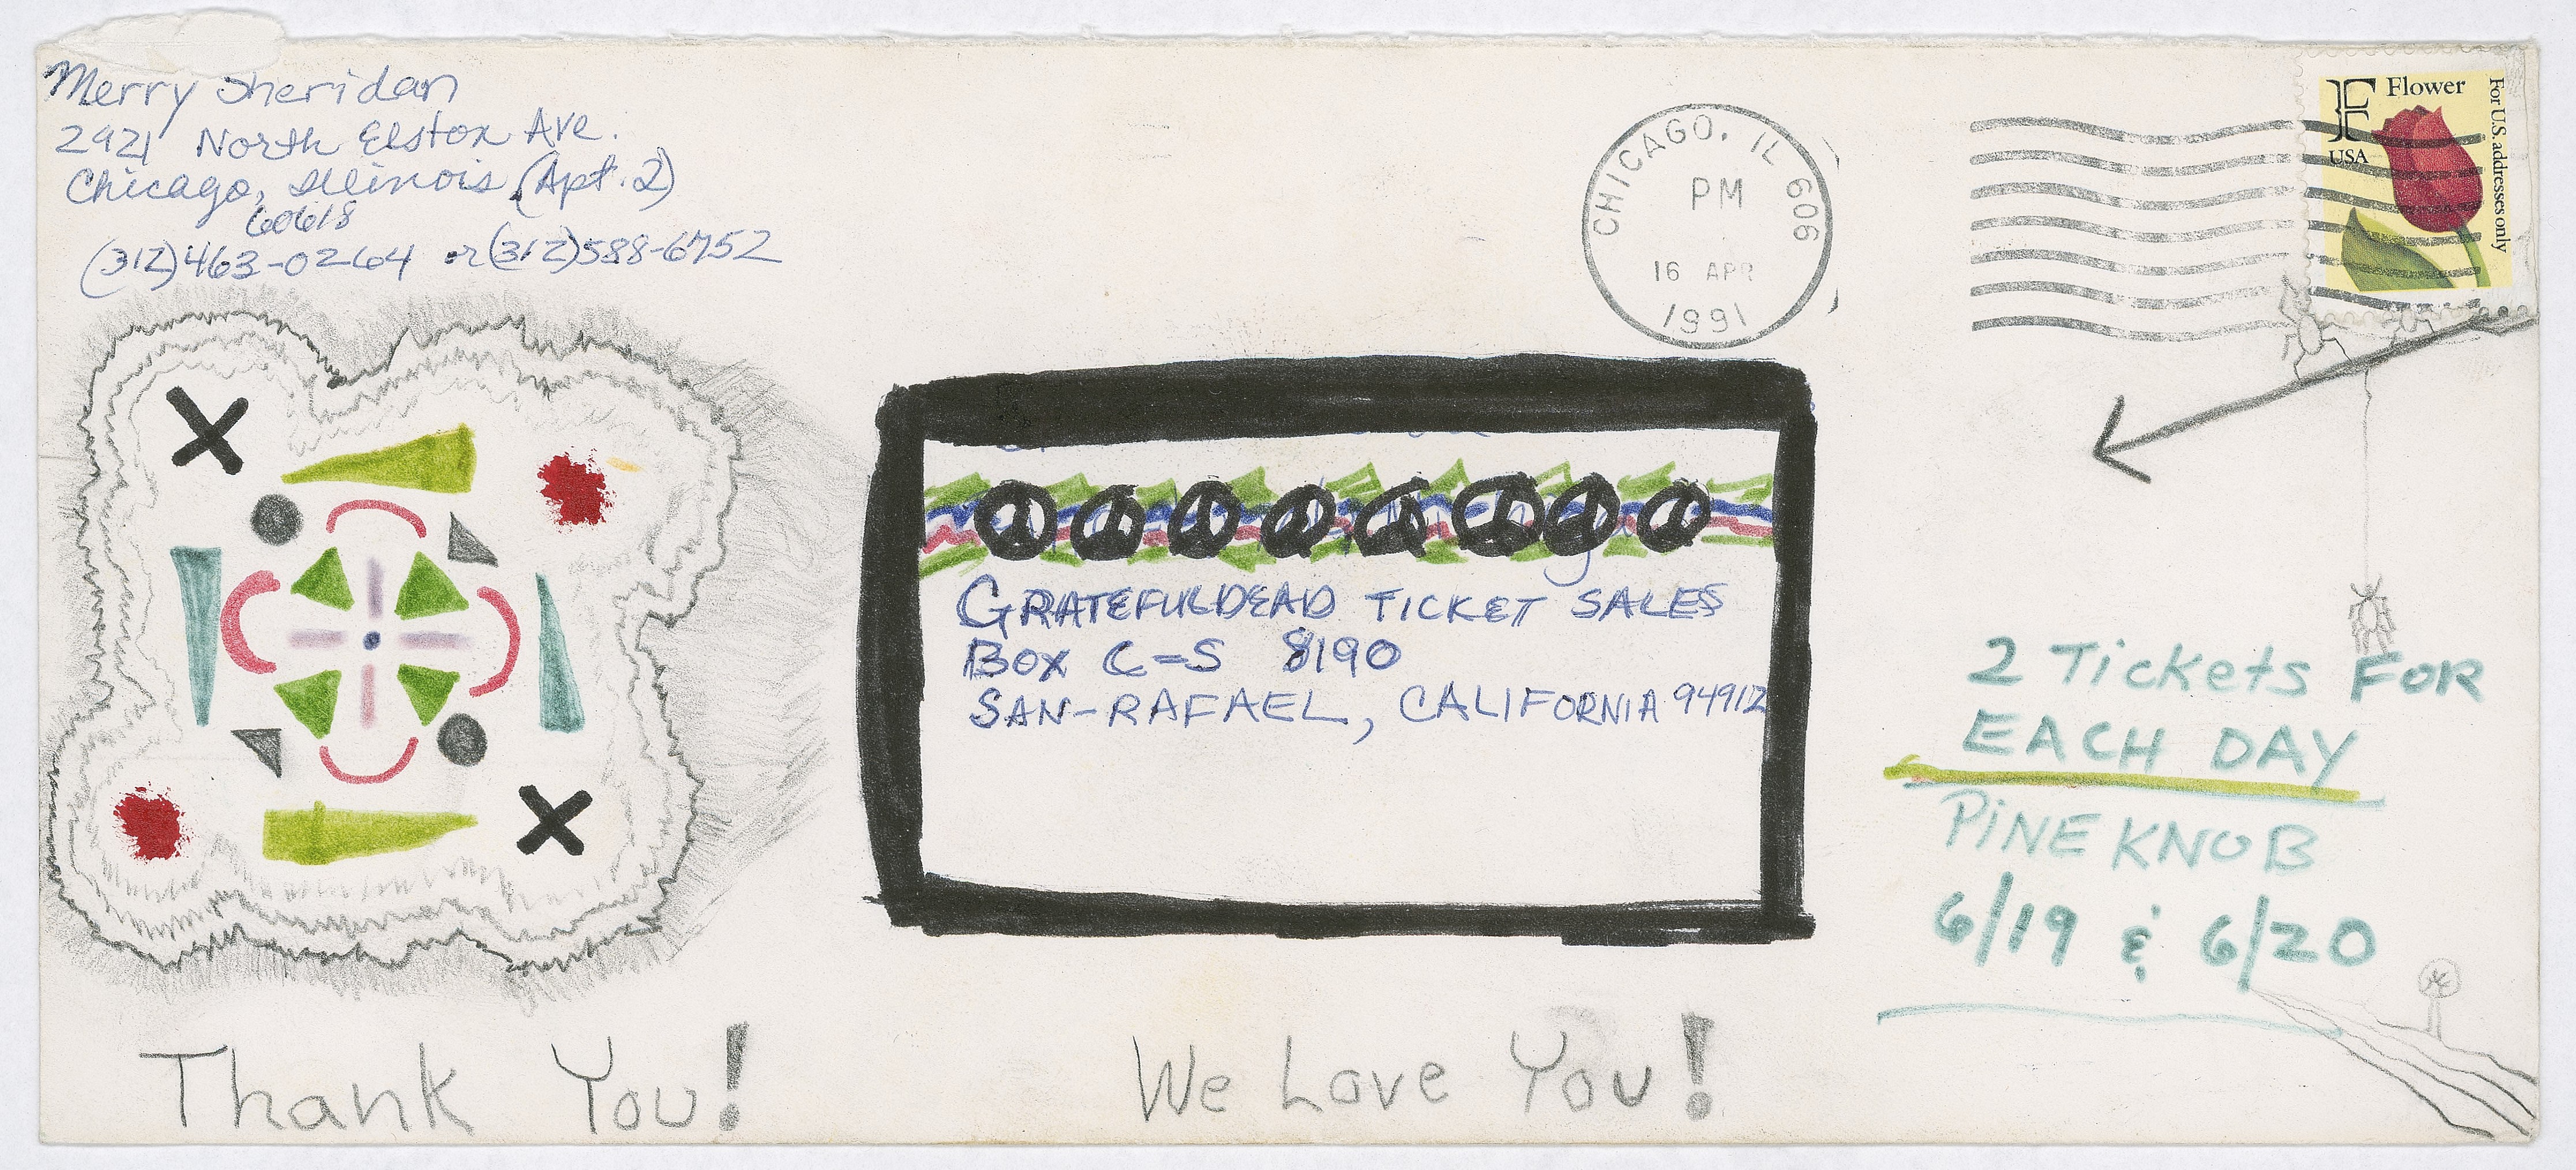 Merry Sheridan
2921 North Elston Ave.
Chicago, Illinois (Apt. 2)
60618
(312)463-0264 or (312)588-6752
CHICAGO, IL 606
PM
16 APR
1991
F Flower
USA
For U.S. addresses only
GRATEFULDEAD TICKET SALES
BOX C=S 8190
SAN-RAFAEL, CALIFORNIA 94912
2 Tickets FOR
EACH DAY
PiNE KNOB
6/19 & 6/20
Thank You!
We Love You!